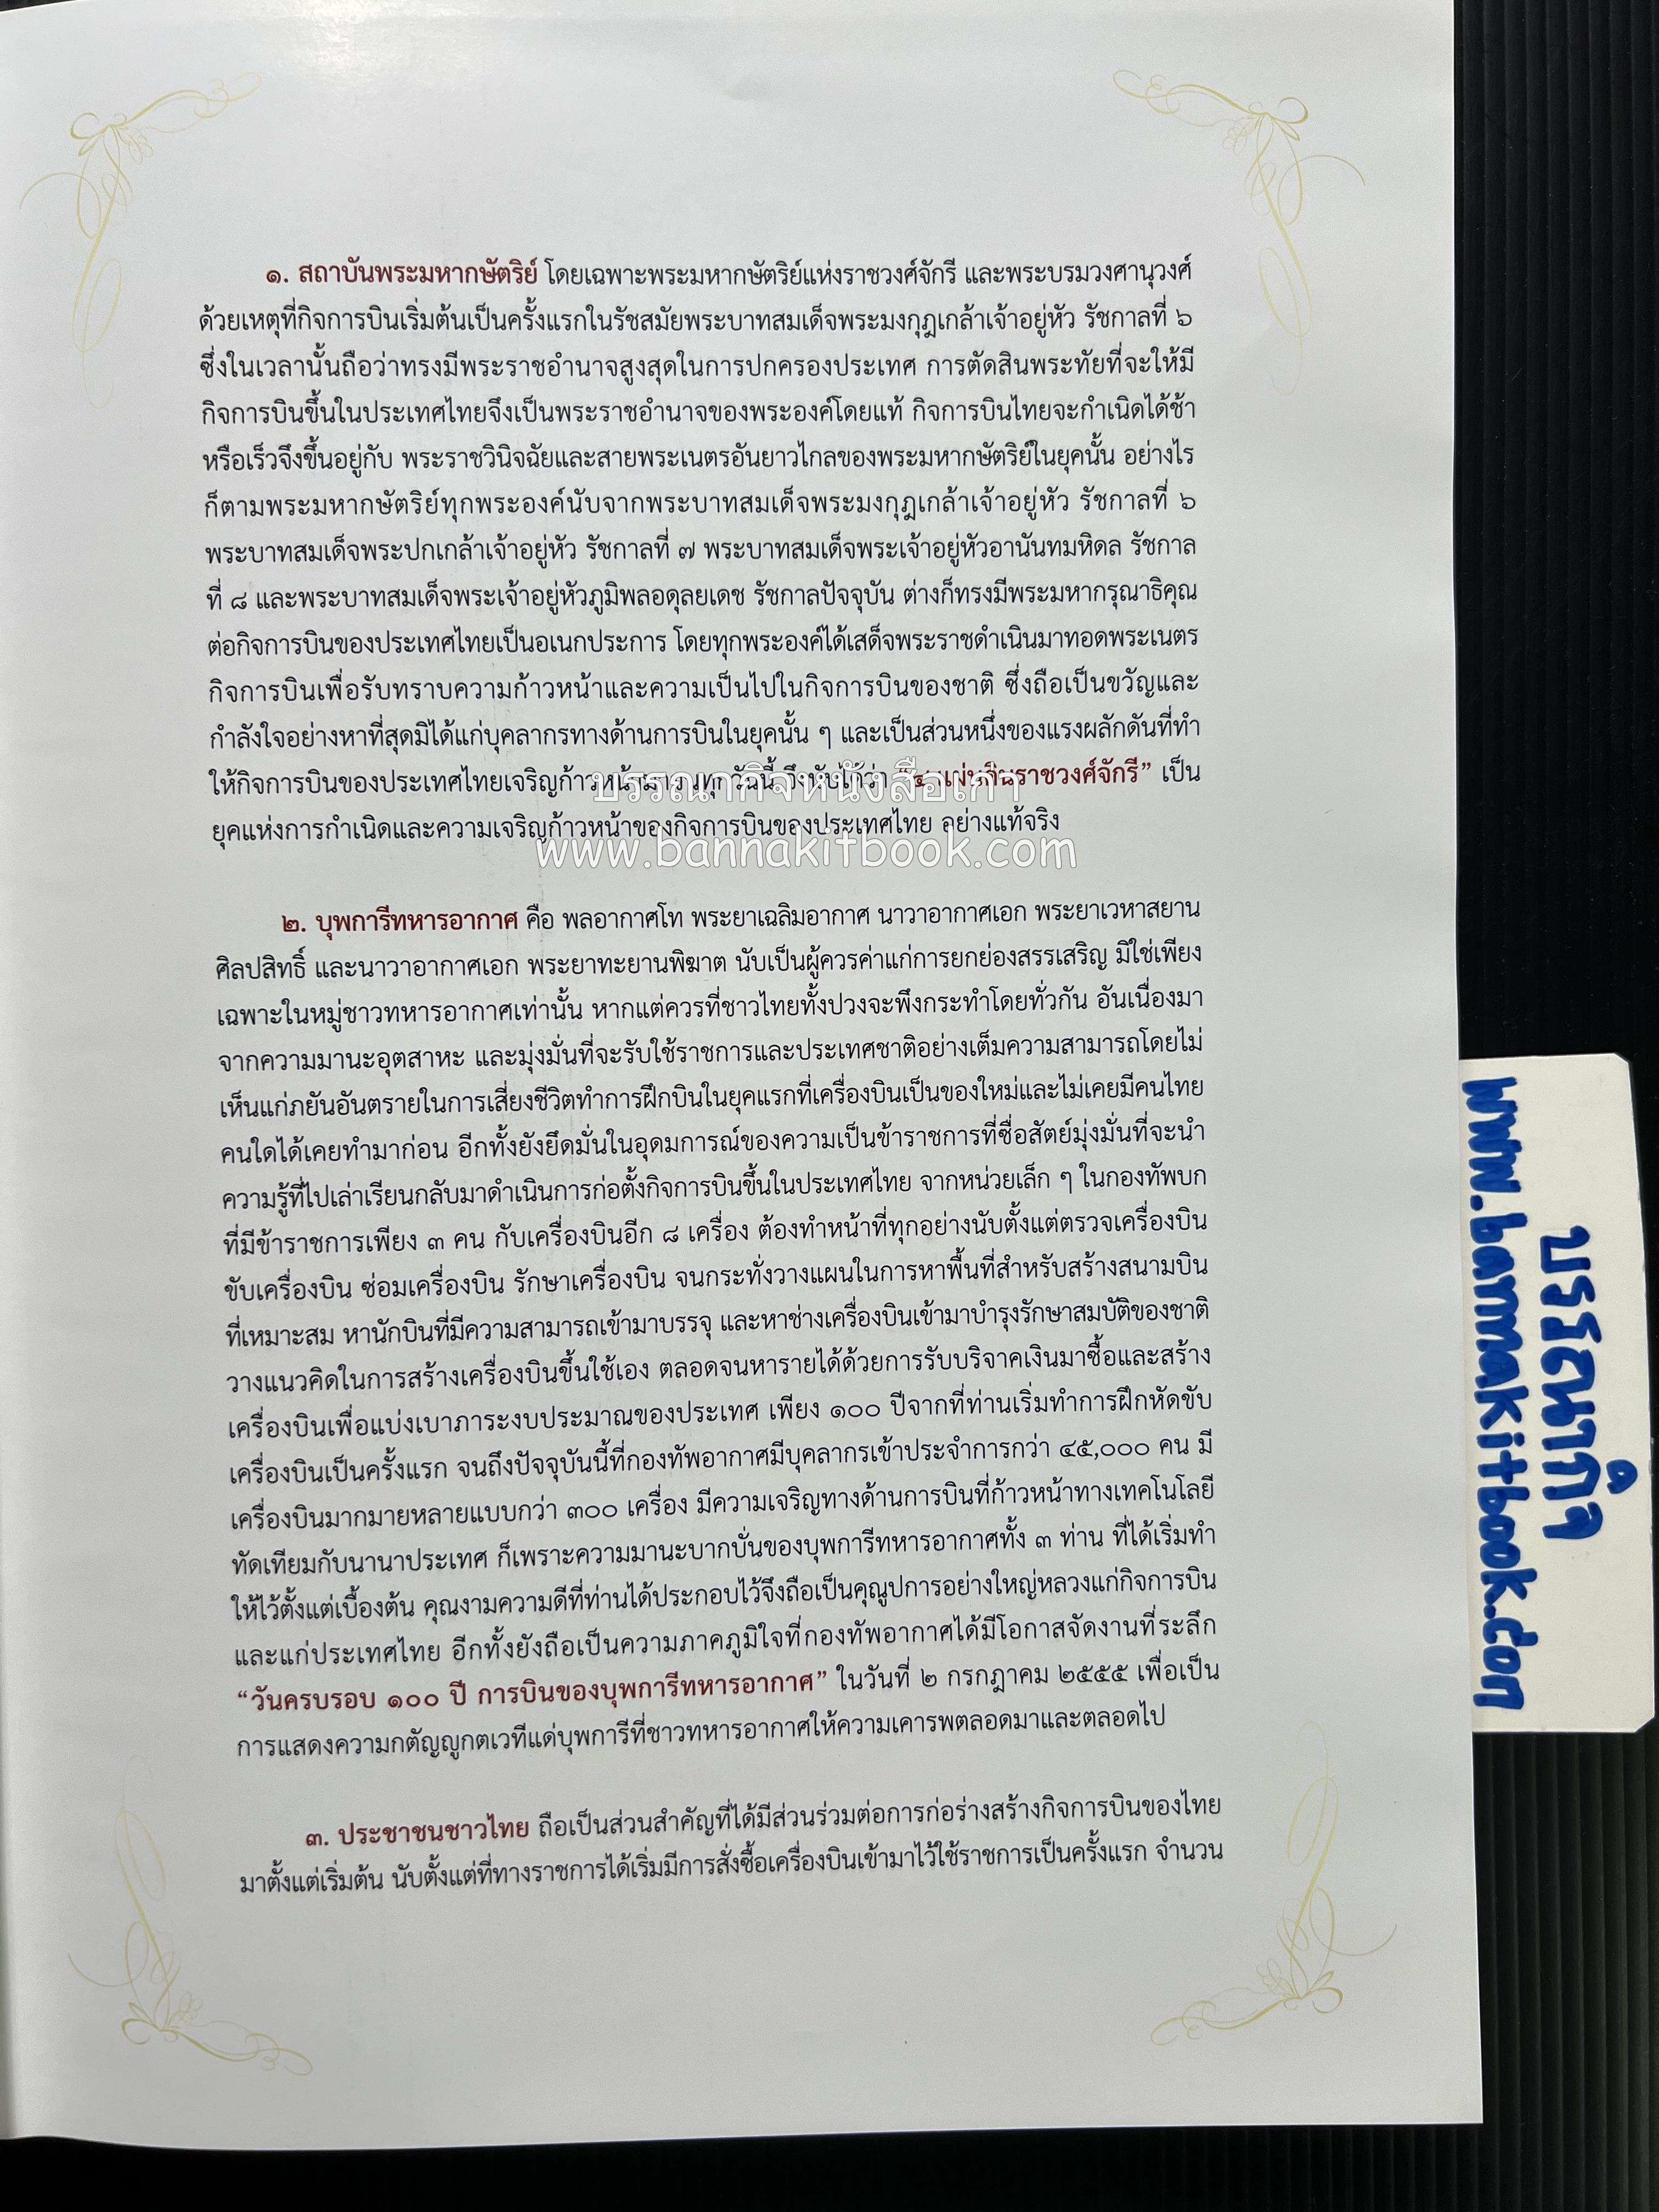 ๑. สถาบันพระมหากษัตริย์ โดยเฉพาะพระมหากษัตริย์แห่งราชวงศ์จักรี และพระบรมวงศานุวงศ์
ด้วยเหตุที่กิจการบินเริ่มต้นเป็นครั้งแรกในรัชสมัยพระบาทสมเด็จพระมงกุฎเกล้าเจ้าอยู่หัว รัชกาลที่ ๖
ซึ่งในเวลานั้นถือว่าทรงมีพระราชอำนาจสูงสุดในการปกครองประเทศ การตัดสินพระทัยที่จะให้มี
กิจการบินขึ้นในประเทศไทยจึงเป็นพระราชอำนาจของพระองค์โดยแท้ กิจการบินไทยจะกำเนิดได้ช้า
หรือเร็วจึงขึ้นอยู่กับ พระราชวินิจฉัยและสายพระเนตรอันยาวไกลของพระมหากษัตริย์ในยุคนั้น อย่างไร
ก็ตามพระมหากษัตริย์ทุกพระองค์นับจากพระบาทสมเด็จพระมงกุฎเกล้าเจ้าอยู่หัว รัชกาลที่ ๖
พระบาทสมเด็จพระปกเกล้าเจ้าอยู่หัว รัชกาลที่ ๗ พระบาทสมเด็จพระเจ้าอยู่หัวอานันทมหิดล รัชกาล
ที่ ๘ และพระบาทสมเด็จพระเจ้าอยู่หัวภูมิพลอดุลยเดช รัชกาลปัจจุบัน ต่างก็ทรงมีพระมหากรุณาธิคุณ
ต่อกิจการบินของประเทศไทยเป็นอเนกประการ โดยทุกพระองค์ได้เสด็จพระราชดำเนินมาทอดพระเนตร
กิจการบินเพื่อรับทราบความก้าวหน้าและความเป็นไปในกิจการบินของชาติ ซึ่งถือเป็นขวัญและ
กำลังใจอย่างหาที่สุดมิได้แก่บุคลากรทางด้านการบินในยุคนั้น ๆ และเป็นส่วนหนึ่งของแรงผลักดันที่ทำ
ให้กิจการบินของประเทศไทยเจริญก้าวหน้ามาจนทุกวันนี้ จึงนับได้ว่า “๔ แผ่นดินราชวงศ์จักรี” เป็น
บรรณากิจหนังสือเก่า
ยุคแห่งการกำเนิดและความเจริญก้าวหน้าของกิจการบินของประเทศไทย อย่างแท้จริง
www.bannakitbook.com
๒. บุพการีทหารอากาศ คือ พลอากาศโท พระยาเฉลิมอากาศ นาวาอากาศเอก พระยาเวหาสยาน
ศิลปสิทธิ์ และนาวาอากาศเอก พระยาทะยานพิฆาต นับเป็นผู้ควรค่าแก่การยกย่องสรรเสริญ มิใช่เพียง
เฉพาะในหมู่ชาวทหารอากาศเท่านั้น หากแต่ควรที่ชาวไทยทั้งปวงจะพึงกระทำโดยทั่วกัน อันเนื่องมา
จากความมานะอุตสาหะ และมุ่งมั่นที่จะรับใช้ราชการและประเทศชาติอย่างเต็มความสามารถโดยไม่
เห็นแก่ภยันอันตรายในการเสี่ยงชีวิตทำการฝึกบินในยุคแรกที่เครื่องบินเป็นของใหม่และไม่เคยมีคนไทย
คนใดได้เคยทำมาก่อน อีกทั้งยังยึดมั่นในอุดมการณ์ของความเป็นข้าราชการที่ซื่อสัตย์มุ่งมั่นที่จะนำ
ความรู้ที่ไปเล่าเรียนกลับมาดำเนินการก่อตั้งกิจการบินขึ้นในประเทศไทย จากหน่วยเล็ก ๆ ในกองทัพบก
ที่มีข้าราชการเพียง ๓ คน กับเครื่องบินอีก ๘ เครื่อง ต้องทำหน้าที่ทุกอย่างนับตั้งแต่ตรวจเครื่องบิน
ขับเครื่องบิน ซ่อมเครื่องบิน รักษาเครื่องบิน จนกระทั่งวางแผนในการหาพื้นที่สำหรับสร้างสนามบิน
ที่เหมาะสม หานักบินที่มีความสามารถเข้ามาบรรจุ และหาช่างเครื่องบินเข้ามาบำรุงรักษาสมบัติของชาติ
วางแนวคิดในการสร้างเครื่องบินขึ้นใช้เอง ตลอดจนหารายได้ด้วยการรับบริจาคเงินมาซื้อและสร้าง
เครื่องบินเพื่อแบ่งเบาภาระงบประมาณของประเทศ เพียง ๑๐๐ ปีจากที่ท่านเริ่มทำการฝึกหัดขับ
เครื่องบินเป็นครั้งแรก จนถึงปัจจุบันนี้ที่กองทัพอากาศมีบุคลากรเข้าประจำการกว่า ๔๕,๐๐๐ คน มี
เครื่องบินมากมายหลายแบบกว่า ๓๐๐ เครื่อง มีความเจริญทางด้านการบินที่ก้าวหน้าทางเทคโนโลยี
ทัดเทียมกับนานาประเทศ ก็เพราะความมานะบากบั่นของบุพการีทหารอากาศทั้ง ๓ ท่าน ที่ได้เริ่มทำ
ให้ไว้ตั้งแต่เบื้องต้น คุณงามความดีที่ท่านได้ประกอบไว้จึงถือเป็นคุณูปการอย่างใหญ่หลวงแก่กิจการบิน
และแก่ประเทศไทย อีกทั้งยังถือเป็นความภาคภูมิใจที่กองทัพอากาศได้มีโอกาสจัดงานที่ระลึก
“วันครบรอบ ๑๐๐ ปี การบินของบุพการีทหารอากาศ” ในวันที่ ๒ กรกฎาคม ๒๕๕๕ เพื่อเป็น
การแสดงความกตัญญูกตเวทีแด่บุพการีที่ชาวทหารอากาศให้ความเคารพตลอดมาและตลอดไป
๓. ประชาชนชาวไทย ถือเป็นส่วนสำคัญที่ได้มีส่วนร่วมต่อการก่อร่างสร้างกิจการบินของไทย
มาตั้งแต่เริ่มต้น นับตั้งแต่ที่ทางราชการได้เริ่มมีการสั่งซื้อเครื่องบินเข้ามาไว้ใช้ราชการเป็นครั้งแรก จำนวน
บรรณากิจ
www.bannakitbook.com